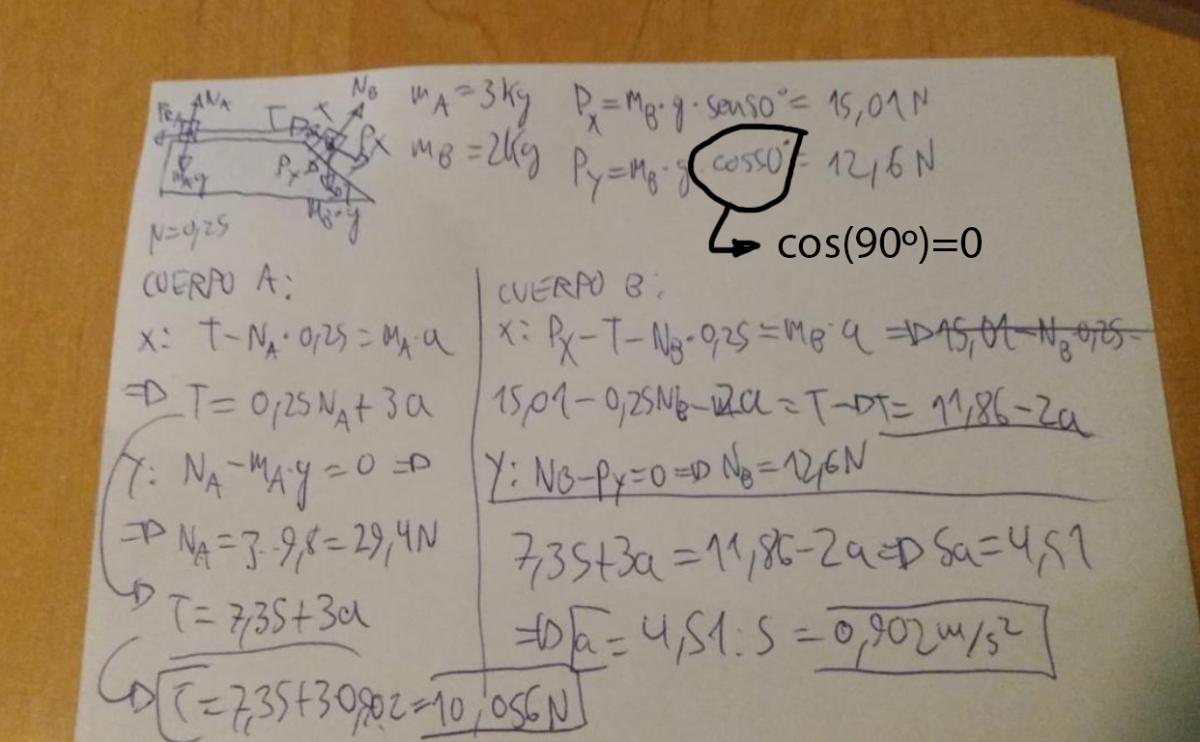 N_A N_B
T
P_X
P_Y
m_A·g
M_B·g
μ=0,25
m_A=3Kg
m_B=2Kg
P_X=m_B·g·sen50°=15,01N
P_Y=m_B·g·cos50°=12,6N
cos(90º)=0
CUERPO A:
X: T-N_A·0,25=m_A·a
=D T=0,25N_A+3a
Y: N_A-m_A·g=0 =D
=D N_A=3·9,8=29,4N
T=7,35+3a
T=7,35+30,902=10,056N
CUERPO B:
X: P_X-T-N_B·0,25=m_B·a =D 15,01-N_B·0,25-
15,01-0,25N_B-2a=T-DT=11,86-2a
Y: N_B-P_Y=0=D N_B=12,6N
7,35+3a=11,86-2a=D 5a=4,51
=D a=4,51:5=0,902m/s²